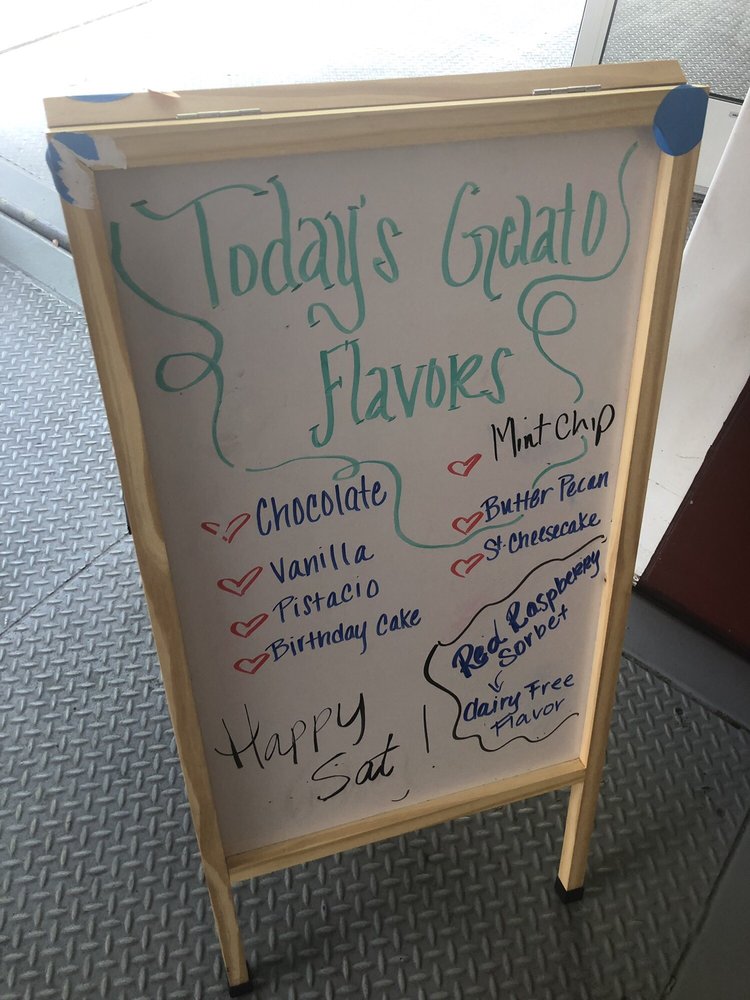 Today's Gelato
Flavors
Chocolate
Vanilla
Pistacio
Birthday Cake
Mint Chip
Butter Pecan
St. Cheesecake
Red Raspberry
Sorbet
dairy Free
Flavor
Happy
Sat!